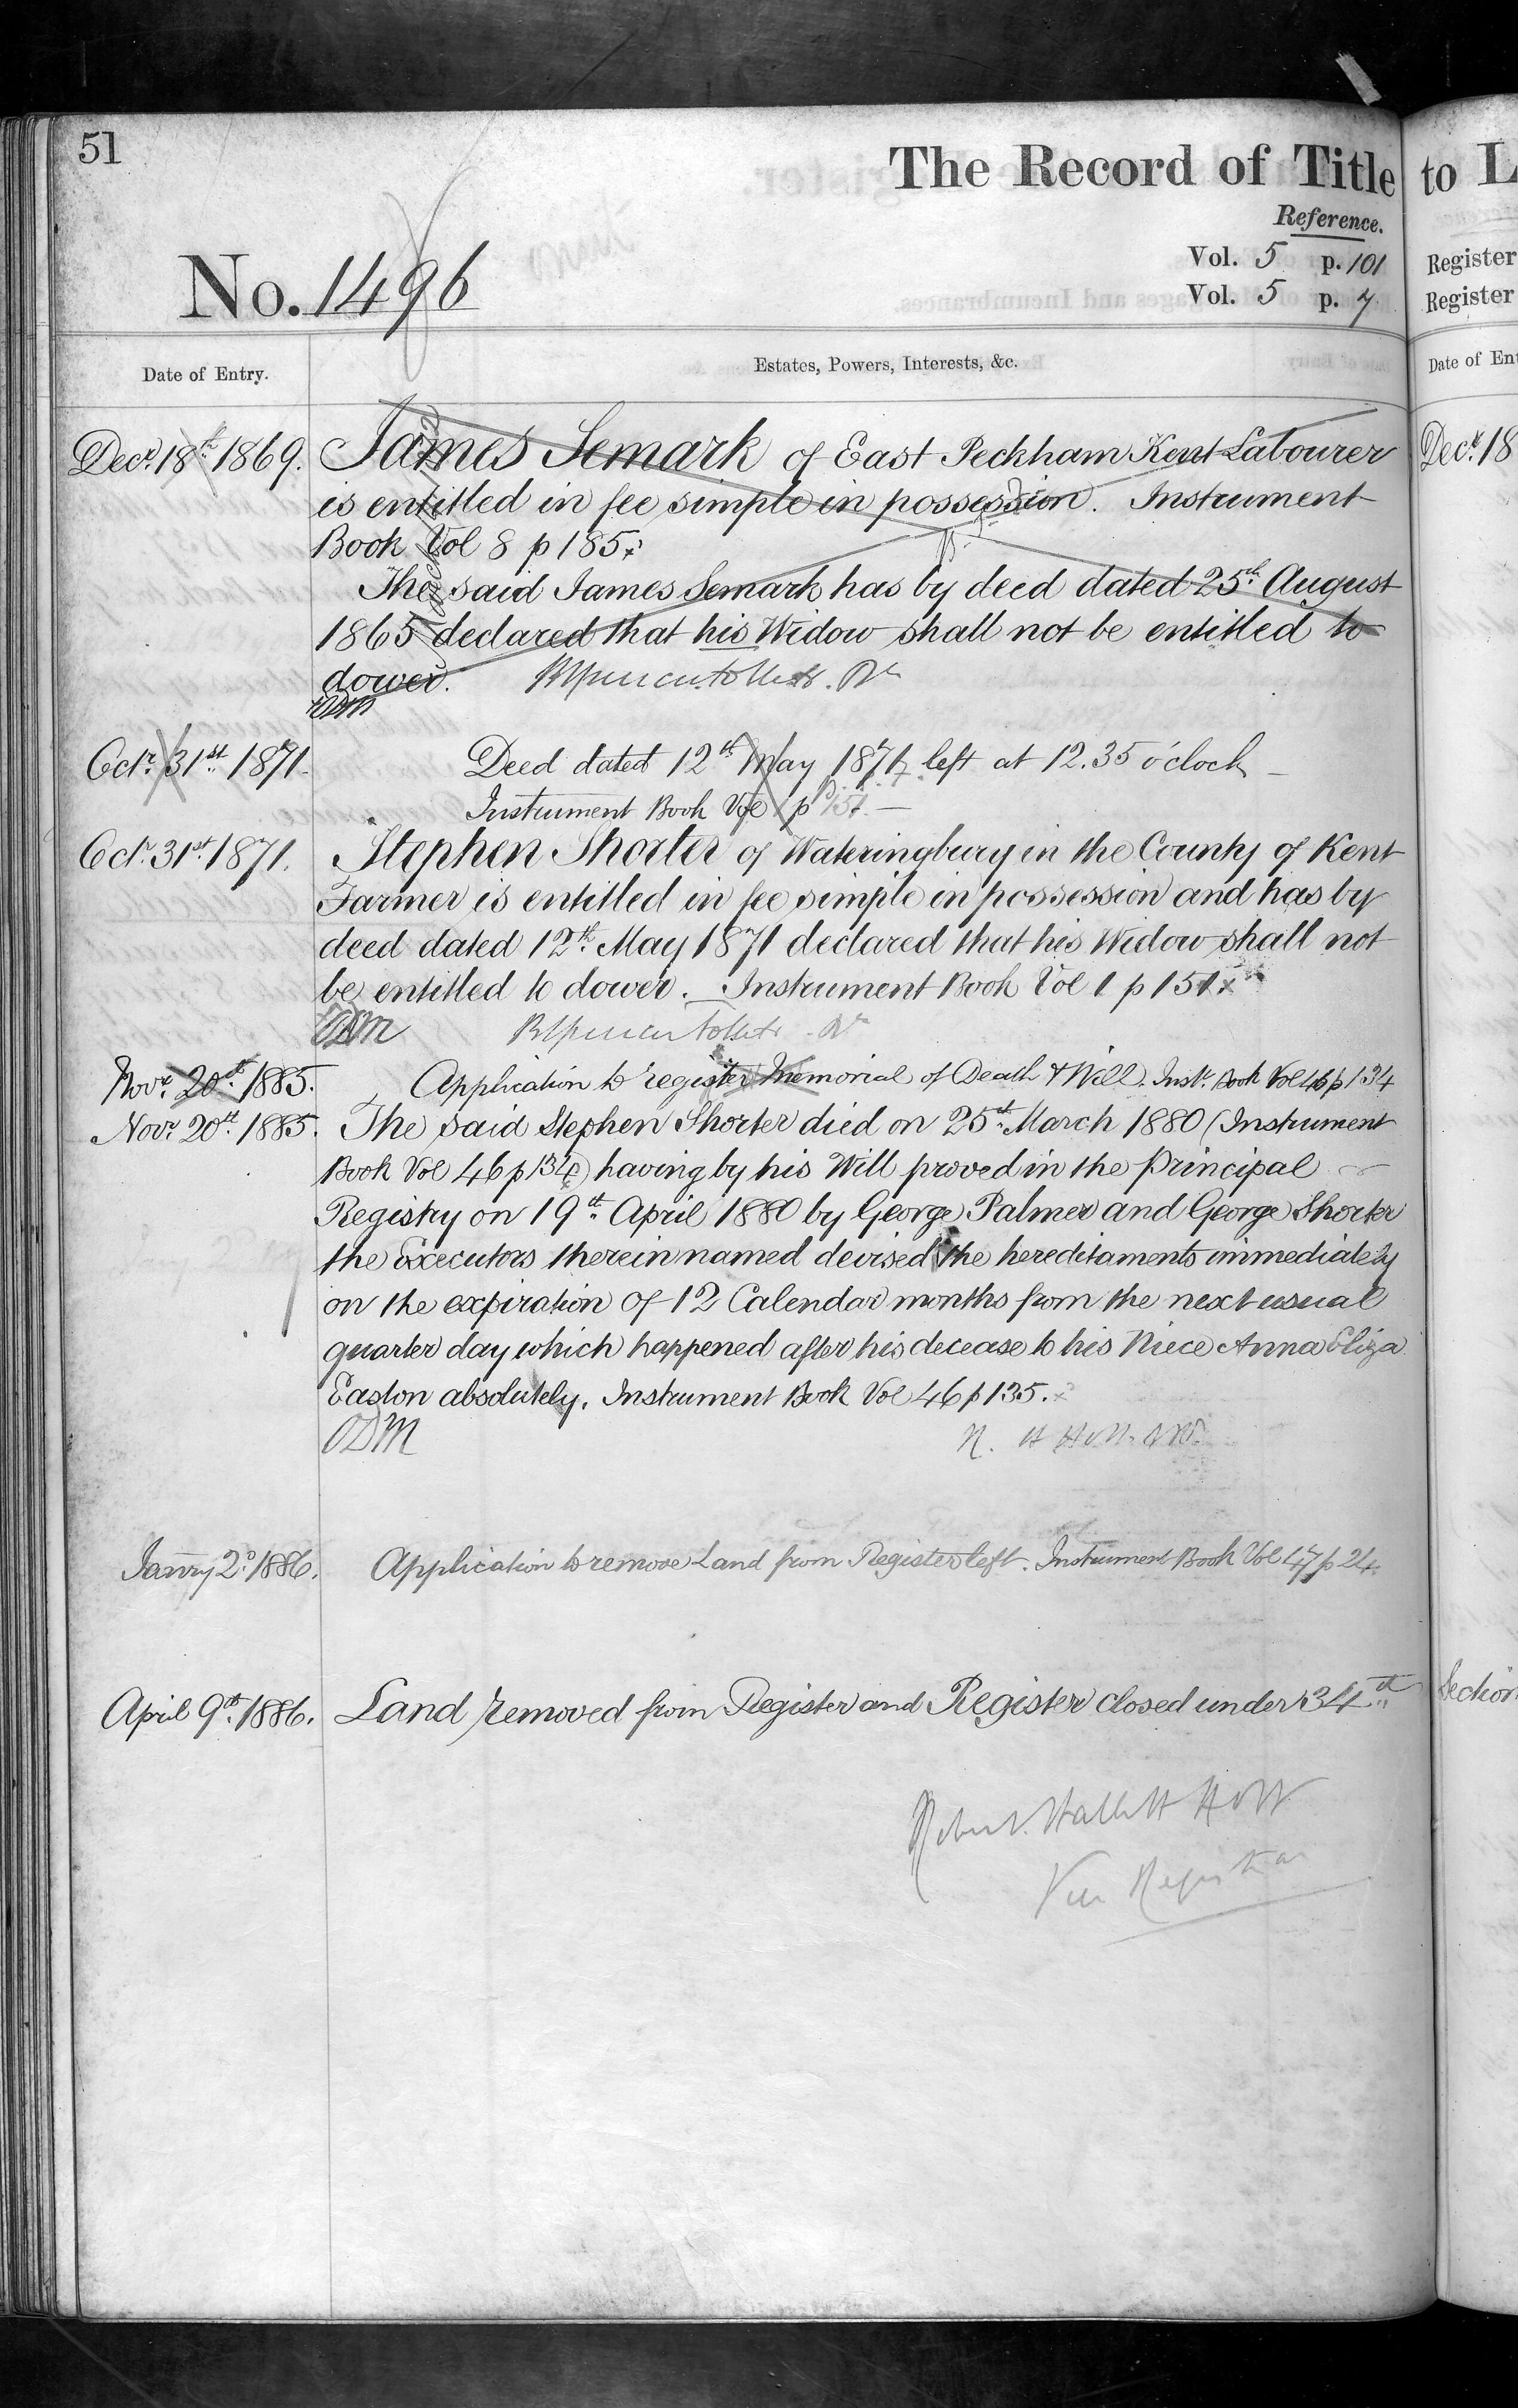 51
The Record of Title to L
Reference.
Vol. 5 p. 101 Register
Vol. 5 p. 7 Register
No. 1496
Date of Entry.
Estates, Powers, Interests, &c.
Date of Ent
Decr. 18th 1869. James Semark of East Peckham Kent Labourer
Decr. 18
is entitled in fee simple in possession. Instrument
Book Vol 8 p 185
The said James Semark has by deed dated 25th August
1865 declared that his Widow shall not be entitled to
dower.
Octr. 31st 1871. Deed dated 12th May 1871 left at 12.35 o'clock
Instrument Book Vol 1 p 151
Octr. 31st 1871. Stephen Shorter of Wateringbury in the County of Kent
Farmer is entitled in fee simple in possession and has by
deed dated 12th May 1871 declared that his Widow shall not
be entitled to dower. Instrument Book Vol 1 p 151
ODM
Novr. 20th 1885. Application to register Memorial of Death & Will. Instr. Book Vol 46 p 134
Novr. 20th 1885. The said Stephen Shorter died on 25th March 1880 (Instrument
Book Vol 46 p 134) having by his Will proved in the Principal
Registry on 19th April 1880 by George Palmer and George Shorter
the Executors therein named devised the hereditaments immediately
on the expiration of 12 Calendar months from the next usual
quarter day which happened after his decease to his Niece Anna Eliza
Easton absolutely. Instrument Book Vol 46 p 135.
ODM
Janry 2d 1886. Application to remove Land from Register left. Instrument Book Vol 47 p 24
April 9th 1886. Land removed from Register and Register closed under 34th
Section
Robert Hallett Holt
Vice Registrar